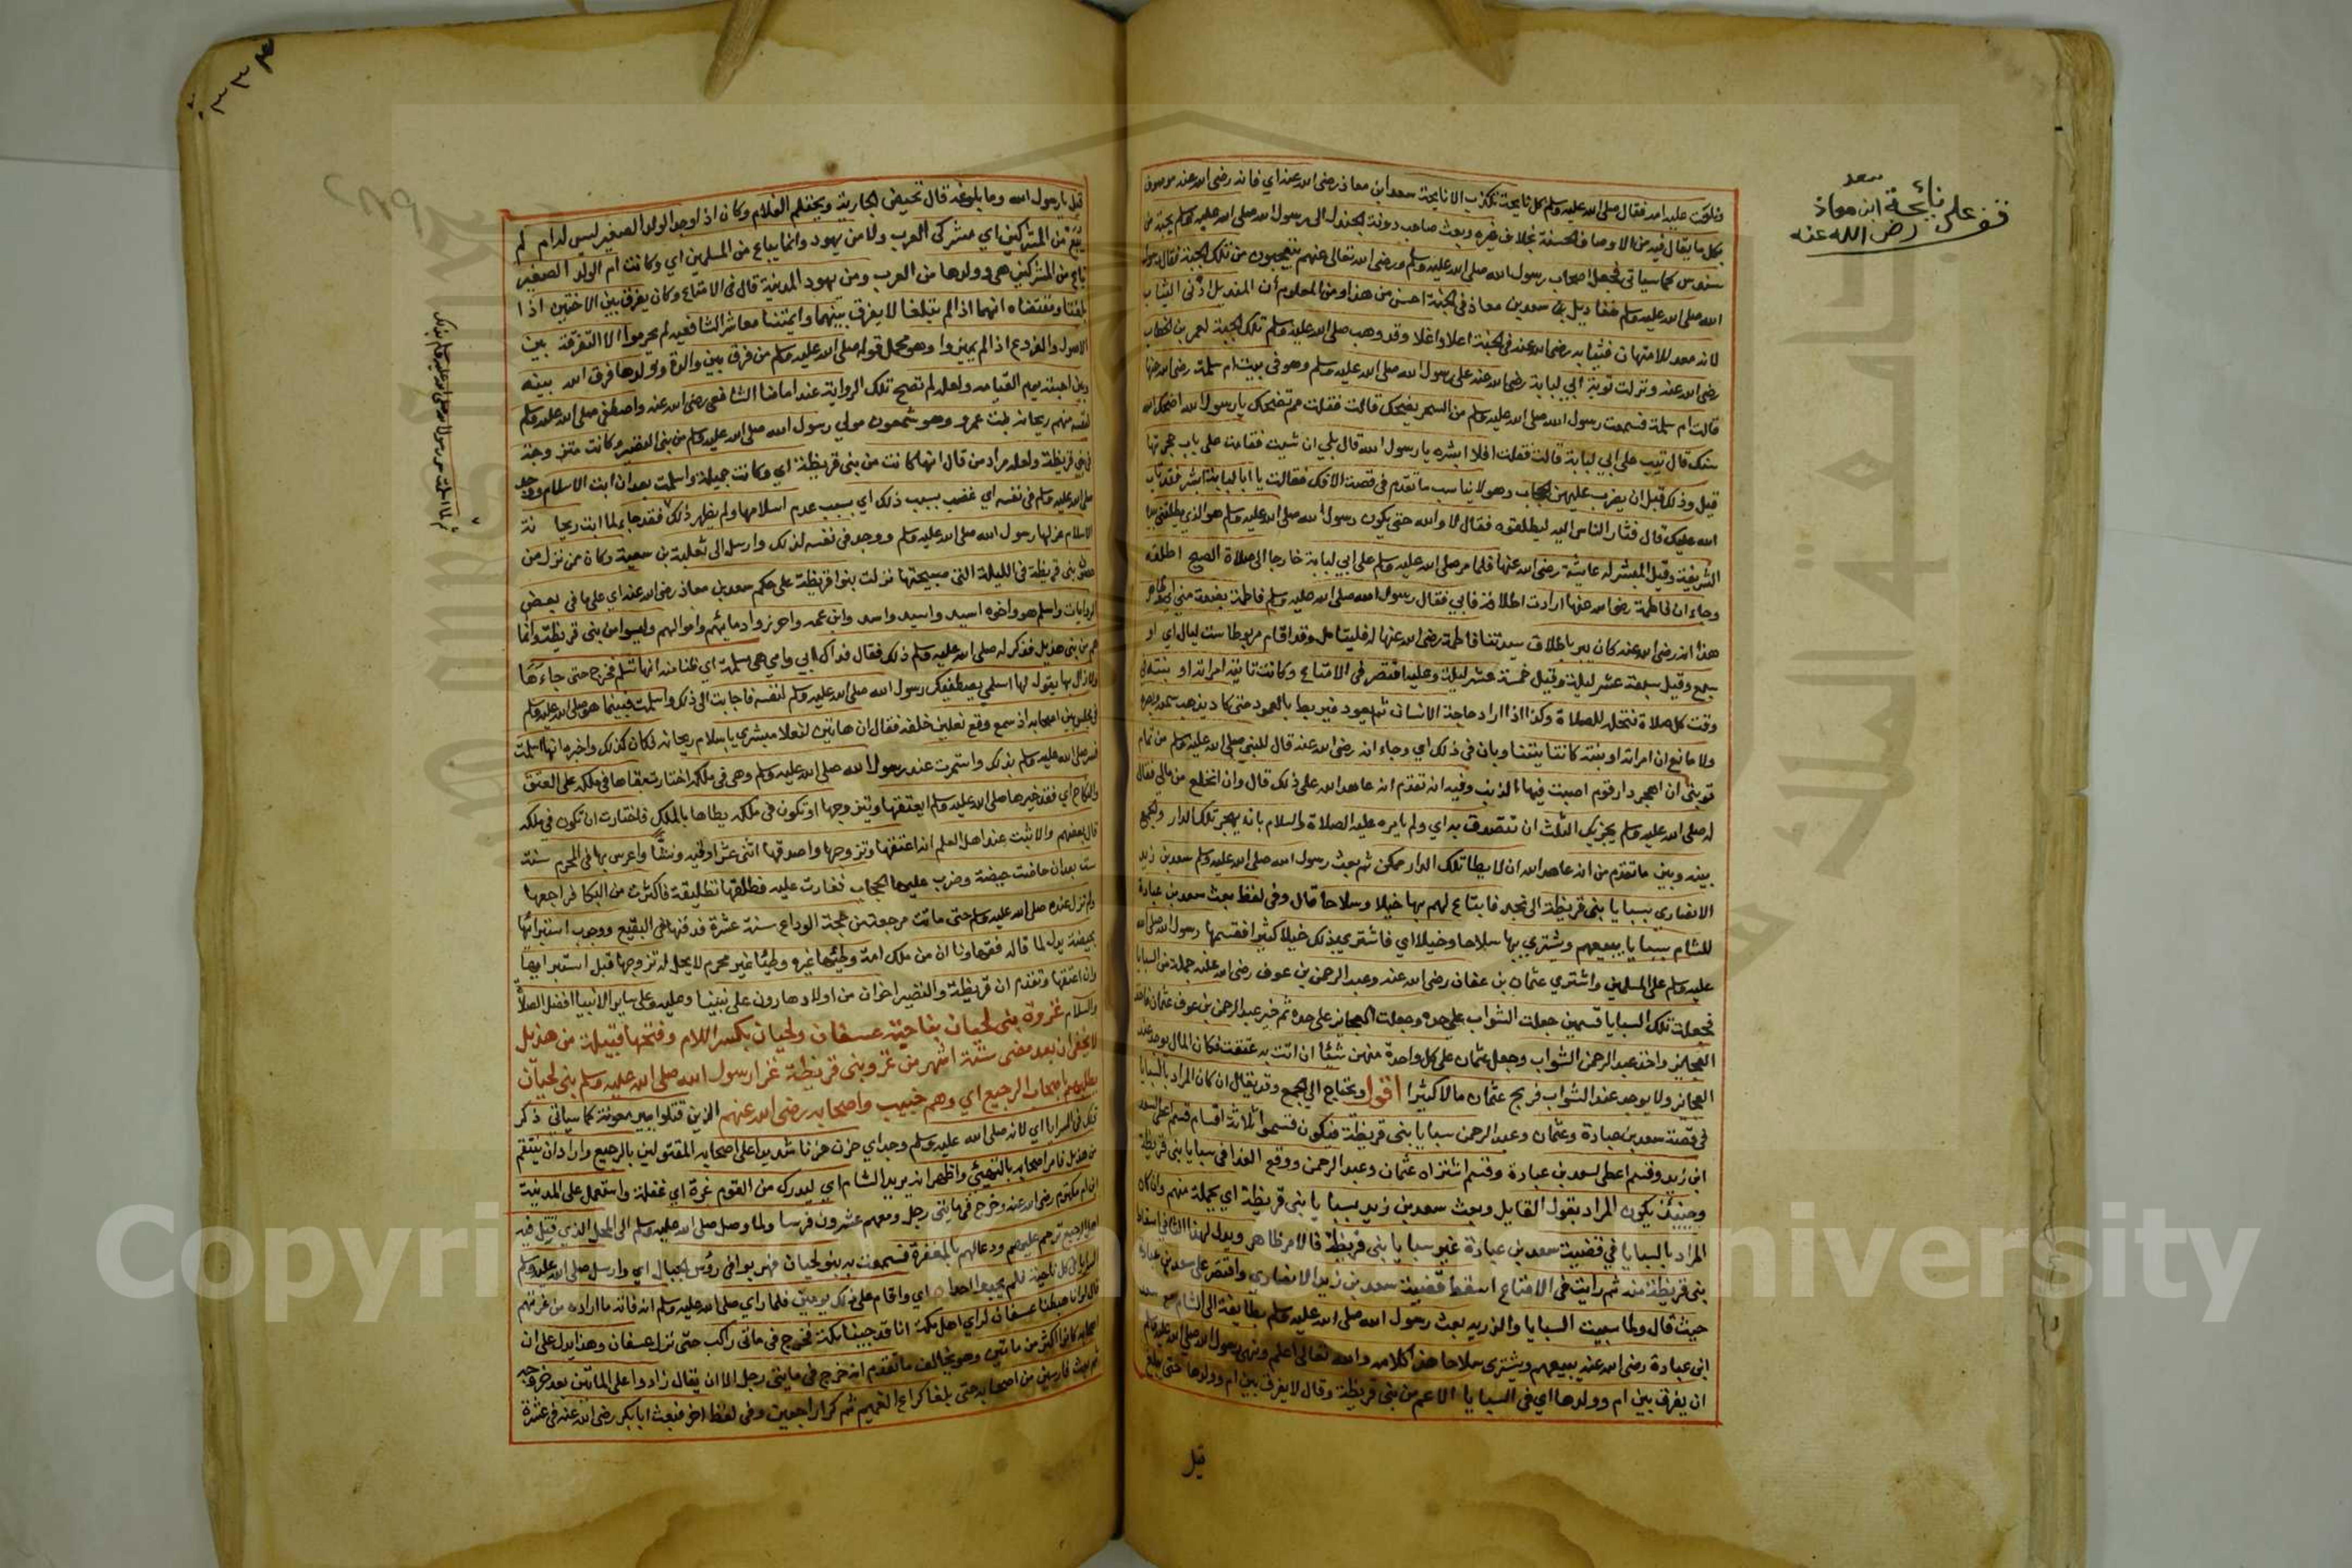 قف على نائحة سعد
ابن معاذ
رضى الله عنه
فناحت عليه امه فقال صلى الله عليه وسلم كل نايحة تكذب الا نايحة سعد ابن معاذ رضى الله عنه اي فانه رضى الله عنه موصوف
بكل ما يقال فيه من الاوصاف الحسنة بخلاف غيره وبعث صاحب دومة الجندل الى رسول الله صلى الله عليه وسلم بجبة من
سندس كما سياتى فجعل اصحاب رسول الله صلى الله عليه وسلم ورضى الله تعالى عنهم يتعجبون من تلك الجبة فقال رسول
الله صلى الله عليه وسلم لمناديل سعد بن معاذ في الجنة احسن من هذا ومن المعلوم أن المنديل ادنى الثياب
لانه معد للامتهان فثيابه رضى الله عنه في الجنة اعلا واغلا وقد وهب صلى الله عليه وسلم تلك الجبة لعمر بن الخطاب
رضى الله عنه ونزلت توبة ابي لبابة رضى الله عنه على رسول الله صلى الله عليه وسلم وهو فى بيت ام سلمة رضى الله عنها
قالت ام سلمة فسمعت رسول الله صلى الله عليه وسلم من السحر يضحك قالت فقلت مم تضحك يا رسول الله اضحك الله
سنك قال تيب على ابي لبابة قالت فقلت افلا ابشره يا رسول الله قال بلي ان شيت فقامت على باب حجرتها
قيل وذلك قبل ان يضرب عليهن الحجاب وهو لا يناسب ما تقدم فى قصة الافك فقالت يا ابا لبابة ابشر فقد تاب
الله عليك قال فثار الناس اليه ليطلقوه فقال لا والله حتى يكون رسول الله صلى الله عليه وسلم هو الذي يطلقنى بيده
الشريفة وقيل المبشر له عايشة رضى الله عنها فلما مر صلى الله عليه وسلم على ابي لبابة خارجا الى صلاة الصبح اطلقه
وجاء ان فاطمة رضى الله عنها ارادت اطلاقه فابي فقال رسول الله صلى الله عليه وسلم فاطمة بضعة مني
هذا انه رضى الله عنه كان يبر باطلاق سيدتنا فاطمة رضى الله عنها له فليتامل وقد اقام مربوطا ست ليال اي او
سبع وقيل سبعة عشر ليلة وقيل خمسة عشر ليلة وعليه اقتصر فى الامتاع وكانت تاتيه امراته او بنته في
وقت كل صلاة فتحله للصلاة وكذا اذا اراد حاجة الانسان ثم يعود فيربط بالعمود حتى كاد يذهب سمعه وبصره
ولا مانع ان امراته او بنته كانتا يتناوبان فى ذلك اي وجاء انه رضى الله عنه قال للنبى صلى الله عليه وسلم من تمام
توبتى ان اهجر دار قوم اصبت فيها الذنب وفيه انه تقدم انه عاهد الله على ذلك قال وان انخلع من مالي فقال
له صلى الله عليه وسلم يجزيك الثلث ان تتصدق به اي ولم يامره عليه الصلاة والسلام بانه يهجر تلك الدار والجمع
بينه وبين ما تقدم من انه عاهد الله ان لا يطا تلك الدار ممكن ثم بعث رسول الله صلى الله عليه وسلم سعد بن زيد
الانصاري بسبايا بنى قريظة الى نجد فابتاع لهم بها خيلا وسلاحا قال وفى لفظ بعث سعد بن عبادة
للشام بسبايا يبيعهم ويشتري بها سلاحا وخيلا اي فاشترى بذلك خيلا كثيرا فقسمها رسول الله صلى الله
عليه وسلم على المسلمين واشتري عثمان بن عفان رضى الله عنه وعبد الرحمن بن عوف رضى الله عنه جملة من السبايا
فجعلت تلك السبايا قسمين جعلت الشواب على حده وجعلت العجايز على حده ثم خير عبد الرحمن بن عوف عثمان فاخذ
العجايز واخذ عبد الرحمن الشواب وجعل عثمان على كل واحدة منهن شيئا ان اتت به عتقت فكان المال يوجد عند
العجايز ولا يوجد عند الشواب فربح عثمان مالا كثيرا اقول ويحتاج الي الجمع وقد يقال ان كان المراد بالسبايا
فى قصة سعد بن عبادة وعثمان وعبد الرحمن سبايا بنى قريظة فيكون قسموا ثلاثة اقسام قسم اعطى لسعد
ابن زيد وقسم اعطى لسعد بن عبادة وقسم اشتراه عثمان وعبد الرحمن ووقع الفدا فى سبايا بنى قريظة
وحينئذ يكون المراد بقول القايل وبعث سعد بن زيد بسبايا بنى قريظة اي بجملة منهم وان كان
المراد بالسبايا في قضية سعد بن عبادة غير سبايا بنى قريظة فالامر ظاهر ويدل لهذا الثاني اسقاط
بنى قريظة منه ثم رايت فى الامتاع اسقط قضية سعد بن زيد الانصاري واقتصر على سعد بن عبادة
حيث قال ولما سبيت السبايا والذريه بعث رسول الله صلى الله عليه وسلم بطايفة الى الشام مع سعد
ابن عبادة رضى الله عنه يبيعهم ويشترى سلاحا هذا كلامه والله تعالى اعلم ونهى رسول الله صلى الله عليه وسلم
ان يفرق بين ام وولدها اي فى السبايا الاعم من بنى قريظة وقال لا يفرق بين ام وولدها حتى يبلغ
قيل
قيل يا رسول الله وما بلوغه قال تحيض الجارية ويحتلم الغلام وكان اذا وجد الولد الصغير ليس له ام لم
يبع من المشركين اي مشركى العرب ولا من يهود وانما يباع من المسلمين اي وكانت ام الولد الصغير
تباع من المشركين هى وولدها من العرب ومن يهود المدينة قال فى الامتاع وكان يفرق بين الاختين اذا
بلغتا ومقتضاه انهما اذا لم يتبلغا لا يفرق بينهما وايمتنا معاشر الشافعيه لم يحرموا الا التفرقة بين
الاصول والفروع اذا لم يميزوا وهو محمل قوله صلى الله عليه وسلم من فرق بين والدة وولدها فرق الله بينه
وبين احبته يوم القيامه ولعله لم تصح تلك الرواية عند امامنا الشافعى رضى الله عنه واصطفى صلى الله عليه وسلم
لنفسه منهم ريحانه بنت عمرو وهو شمعون مولي رسول الله صلى الله عليه وسلم من بنى النضير وكانت متزوجة
فى بنى قريظة ولعله مراد من قال انها كانت من بنى قريظة اي وكانت جميلة واسلمت بعد ان ابت الاسلام ووجد
صلى الله عليه وسلم فى نفسه اي غضب بسبب ذلك اي بسبب عدم اسلامها ولم يظهر ذلك فقد جا لما ابت ريحانة
الاسلام عزلها رسول الله صلى الله عليه وسلم ووجد فى نفسه لذلك وارسل الى ثعلبة بن سعية وكان ممن نزل من
حصن بنى قريظة فى الليلة التى صبيحتها نزلت بنوا قريظة على حكم سعد بن معاذ رضى الله عنه اي على ما فى بعض
الروايات واسلم هو واخوه اسيد واسيد واسد وابن عمه واحرزوا دمائهم واموالهم وليسوا من بنى قريظة وانما
هم من بنى هذيل فذكر له صلى الله عليه وسلم ذلك فقال فداك ابي وامي هى مسلمة اي ظنا منه انها تسلم فخرج حتى جاءها
ولا زال بها يقول لها اسلمي يصطفيك رسول الله صلى الله عليه وسلم لنفسه فاجابت الى ذلك واسلمت فبينما هو صلى الله عليه وسلم
فى مجلس بين اصحابه اذ سمع وقع نعلين خلفه فقال ان هاتين لنعلا مبشري باسلام ريحانه فكان كذلك واخبره انها اسلمت
فسر صلى الله عليه وسلم بذلك واستمرت عند رسول الله صلى الله عليه وسلم وهى فى ملكه اختارت بقاها فى ملكه على العتق
والنكاح اي فقد خيرها صلى الله عليه وسلم ايعتقها ويتزوجها او تكون فى ملكه يطاها بالملك فاختارت ان تكون فى ملكه
قال بعضهم والاثبت عند اهل العلم انه اعتقها وتزوجها واصدقها اثنى عشر اوقيه ونشا واعرس بها فى المحرم سنة
ست بعد ان حاضت حيضة وضرب عليها الحجاب فغارت عليه فطلقها تطليقة فاكثرت من البكا فراجعها
ولم تزل عنده صلى الله عليه وسلم حتى ماتت مرجعه من حجة الوداع سنة عشرة فدفنها فى البقيع ووجوب استبرائها
بحيضة يدل لما قاله فقهاونا ان من ملك امة وطئها غيره وطيئا غير محرم لا يحل له تزوجها قبل استبرايها
وان اعتقها وتقدم ان قريظة والنضير اخوان من اولاد هارون على نبينا وعليه وعلى ساير الانبيا افضل الصلاة
والسلام غزوة بنى لحيان بناحية عسفان ولحيان بكسر اللام وفتحها قبيلة من هذيل
لا يخفى ان بعد مضى ستة اشهر من غزو بنى قريظة غزا رسول الله صلى الله عليه وسلم بنى لحيان
يطلبهم باصحاب الرجيع اي وهم خبيب واصحابه رضى الله عنهم الذين قتلوا ببير معونة كما سياتى ذكر
ذلك فى السرايا اي لانه صلى الله عليه وسلم وجد اي حزن حزنا شديدا على اصحابه المقتولين بالرجيع واراد ان ينتقم
من هذيل فامر اصحابه بالتهيئ واظهر انه يريد الشام اي ليدرك من القوم غرة اي غفلة واستعمل على المدينة
ابن ام مكتوم رضى الله عنه وخرج فى مايتى رجل ومعهم عشرون فرسا ولما وصل صلى الله عليه وسلم الى المحل الذي قتل فيه
اهل الرجيع ترحم عليهم ودعا لهم بالمغفرة فسمعت به بنو لحيان فهربوا فى رؤس الجبال اي وارسل صلى الله عليه وسلم
السرايا فى كل ناحية فلم يجدوا احدا اي واقام على ذلك يومين فلما راي صلى الله عليه وسلم انه فاته ما اراده من غرتهم
قال لو انا هبطنا عسفان لراي اهل مكة انا قد جينا مكة فخرج فى مائتى راكب حتى نزل عسفان وهذا يدل على ان
اصحابه كانوا اكثر من مايتين وهو يخالف ما تقدم انه خرج فى مايتى رجل الا ان يقال زادوا على المايتين بعد خروجه
ثم بعث فارسين من اصحابه حتى بلغا كراع الغميم ثم كرا راجعين وفى لفظ اخر فبعث ابا بكر رضى الله عنه فى عشرة